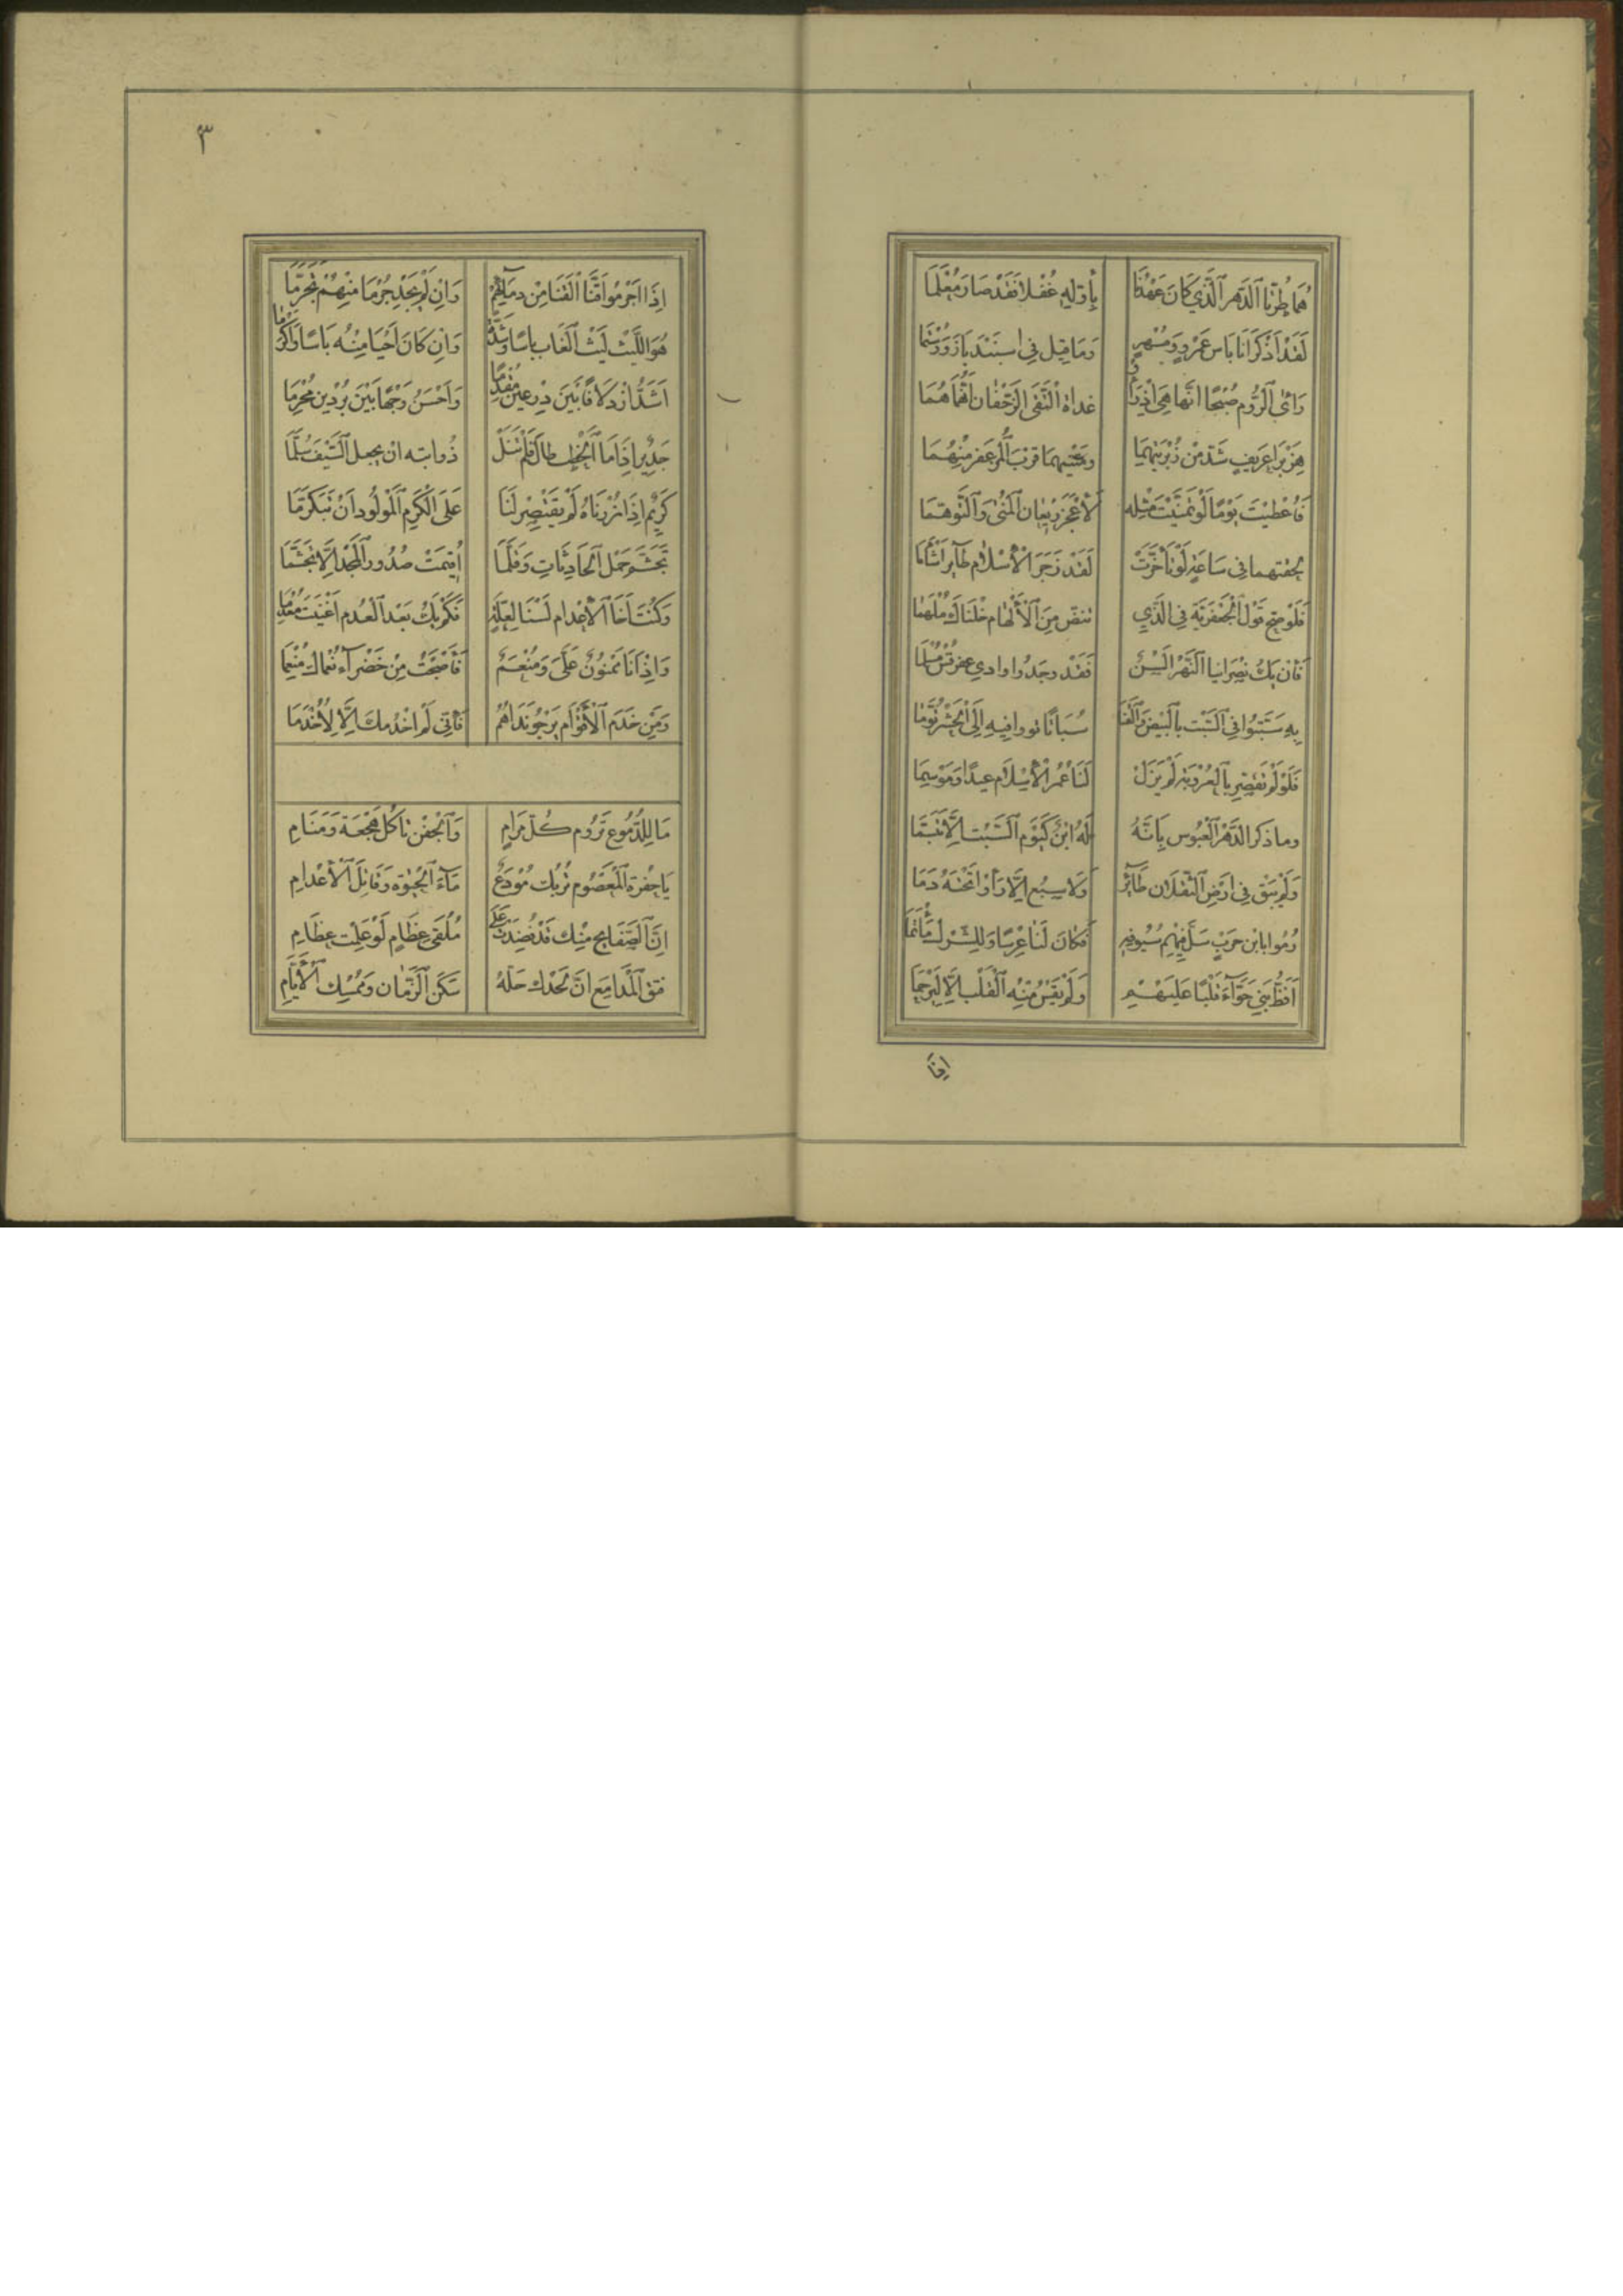 هُمَا طَرَّنَا ٱلدَّهرَ ٱلَّذِي كَانَ عَهْدُنَا بِاَوّلِهِ غُفْلاً فَقَدْ صَارَ مُعْلَمَا
لَقَدْ اَذْكَرَانَا بَاس عَمْرٍو وَمُسْهِرٍ وَمَا قِيلَ فِي اسبَنْدَيَاذَ وَرُسْتَمَا
رَاىٰ ٱلرُّوم صُبْحًا انَّهَا هِيَ اذ رَاَوْا غداة ٱلْتَقَى ٱلزَّحْفَان اَنَّهُمَا هُمَا
هِزَبْرَا غَرِيفٍ شَدّ مِنْ ٱلْمزعفر مِنْهُمَا
فَاُعْطِيتَ يَوْمًا لَوْ تَمَنَّيْتَ مِثْله لَاَعْجَزَ رَيعَان ٱلْمُنىٰ وَٱلتَّوَهّمَا
لحقتهما فِي سَاعَةٍ لَوْ تَاَخَّرَتْ لَقَدْ زَجَرَ ٱلْاِسْلَام طَآئِر اَشْأَمَا
فَلَوْ صَحّ قَوْل ٱلْجَعْفَرِيَّة فِي الَّذِي تنصّ مِنَ ٱلْاِلْهَام خِلْنَاكَ مُلْهَمَا
فَاِن يَكُ نصرَانيا ٱلنَّهرُ اٰلِسٌ فَقَدْ وجَدُوا وادي عقرقس مُسْلِمَا
بِهِ سَبَتُوا فِي ٱلسَّبْت بِٱلْبِيضِ وَٱلْقَنَا سُبَاتًا ثووا فِيهِ اِلَى ٱلْحَشْرِ نُوَّمَا
فَلَوْ لَمْ تُقَصِّر بِٱلْعَرُوبَةِ لَمْ يَزَلْ لَنَا عُمُرَ ٱلْاِسْلَام عِيدًا وَمَوْسِمَا
وما ذكر ٱلدَّهْرُ ٱلْعَبُوس بِاَنَّهُ لَهُ ابْنٌ كَيَوْم ٱلسَّبْت اِلَّا تَبَسَّمَا
وَلَمْ يَبْقَ فِي ارَضِ ٱلْبقلار طَآئِرٌ وَلَا سبُع اِلَّا
رُموا بابن حَرْبٍ سَلَّ فِيهِم سُيُوفهُ فَكَانَ لَنَا عُرْسًا وَلِلشِّرك مَأْتَمَا
اَفَظُّ بَنِي حَوَّآءَ قَلْبًا عَلَيْهِم وَلَمْ يَقْسُ مِنْهُ ٱلْقَلْب اِلَّا لِيَرْحَمَا
اِذَا
٣
اِذَا اَجْرَمُوا قَنَّا ٱلْقَنَا مِنْ دِمَائِهِمْ وَانِ لَمْ يَجِدْ جُرْمًا مِنْهُمْ تَجَرَّمَا
هُوَ اللَّيْثُ لَيْث ٱلْغَاب بَاسًا وَنَجْدَةً وَانِ كَانَ اَحْيَا مِنْهُ بَاسًا وَاَكْرَمَا
اَشَدّ ازدِلَافًا بَيْنَ دِرعين مُقْدِمًا وَاَحْسَنُ وَجْهًا بَيْنَ بُرْدَين مُحْرِمَا
جَدِير اِذَا مَا ٱلْخَطْب طَالَ فَلَمْ تُنَلْ ذُوابته ان يجعل ٱلسَّيْفَ سُلَّمَا
كَرِيم اِذَا زُرْنَاهُ لَمْ يَقْتَصِرْ لَنَا عَلَى ٱلْكَرَمِ ٱلْمَوْلُود اَنْ يَتَكَرَّمَا
تَجَشَّمَ حَمْل ٱلْحَادِثَاتِ وَقَلَّمَا اُقِيمَتْ صُدُورُ ٱلْمَجْد اِلَّا تَجَشُّمَا
وَكُنْتَ اَخَا ٱلْاِعْدَام لَسْنَا لِعَلَّةٍ فَكَمْ بِكَ بَعْدَ ٱلْعُدم اَغْنَيْتَ مُعْدِمَا
وَاِذْ اَنَا مَمْنُونٌ عَلَيَّ وَمُنْعَمٌ فَاَصْبَحْتُ مِنْ خَضْرَآءِ نُعْمَاكَ مُنْعِمَا
وَمَنْ خَدَمَ ٱلْاَقْوَام يَرْجُو نَدَاهُمُ فَاِنِّي لَمْ اَخْدُمْكَ اِلَّا لِاُخْدَمَا
مَا لِلدُّمُوع تَرُوم كُلّ مَرَامِ وَٱلْجَفْن ثاكل هَجْعَة وَمَنَامِ
يَا حُفْرَة ٱلْمَعْصُوم تُرْبك مُودَعٌ مَآءَ ٱلْحَيٰوة وَقَاتِلَ ٱلْاِعْدَامِ
اِنَّ ٱلصَّفَايح مِنْكِ قَدْ نُضِدَتْ عَلَى مُلْقَى عِظَامٍ لَوْ عَلِمْت عِظَامِ
فتق ٱلْمَدَامِعَ انَّ لَحْدك حَلَّهُ سَكَن ٱلزَّمَان وَمُمْسِك ٱلْاَيَّامِ